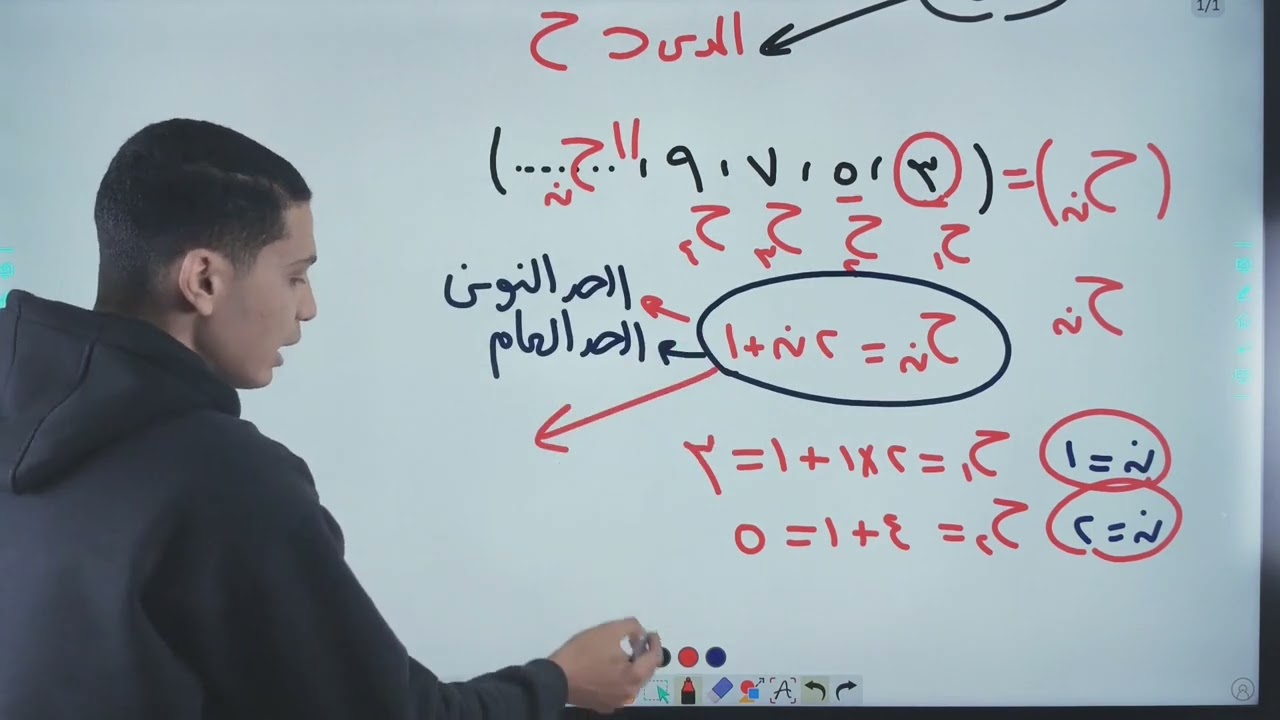 1/1
المدى ⊂ ح
(ح ن) = (٣ ، ٥ ، ٧ ، ٩ ، ١١ ...ح ن....)
ح١ ح٢ ح٣ ح٤
ح ن
الحد النوني
ح ن = ٢ن + ١
الحد العام
ن = ١ ح١ = ٢×١ + ١ = ٣
ن = ٢ ح٢ = ٤ + ١ = ٥